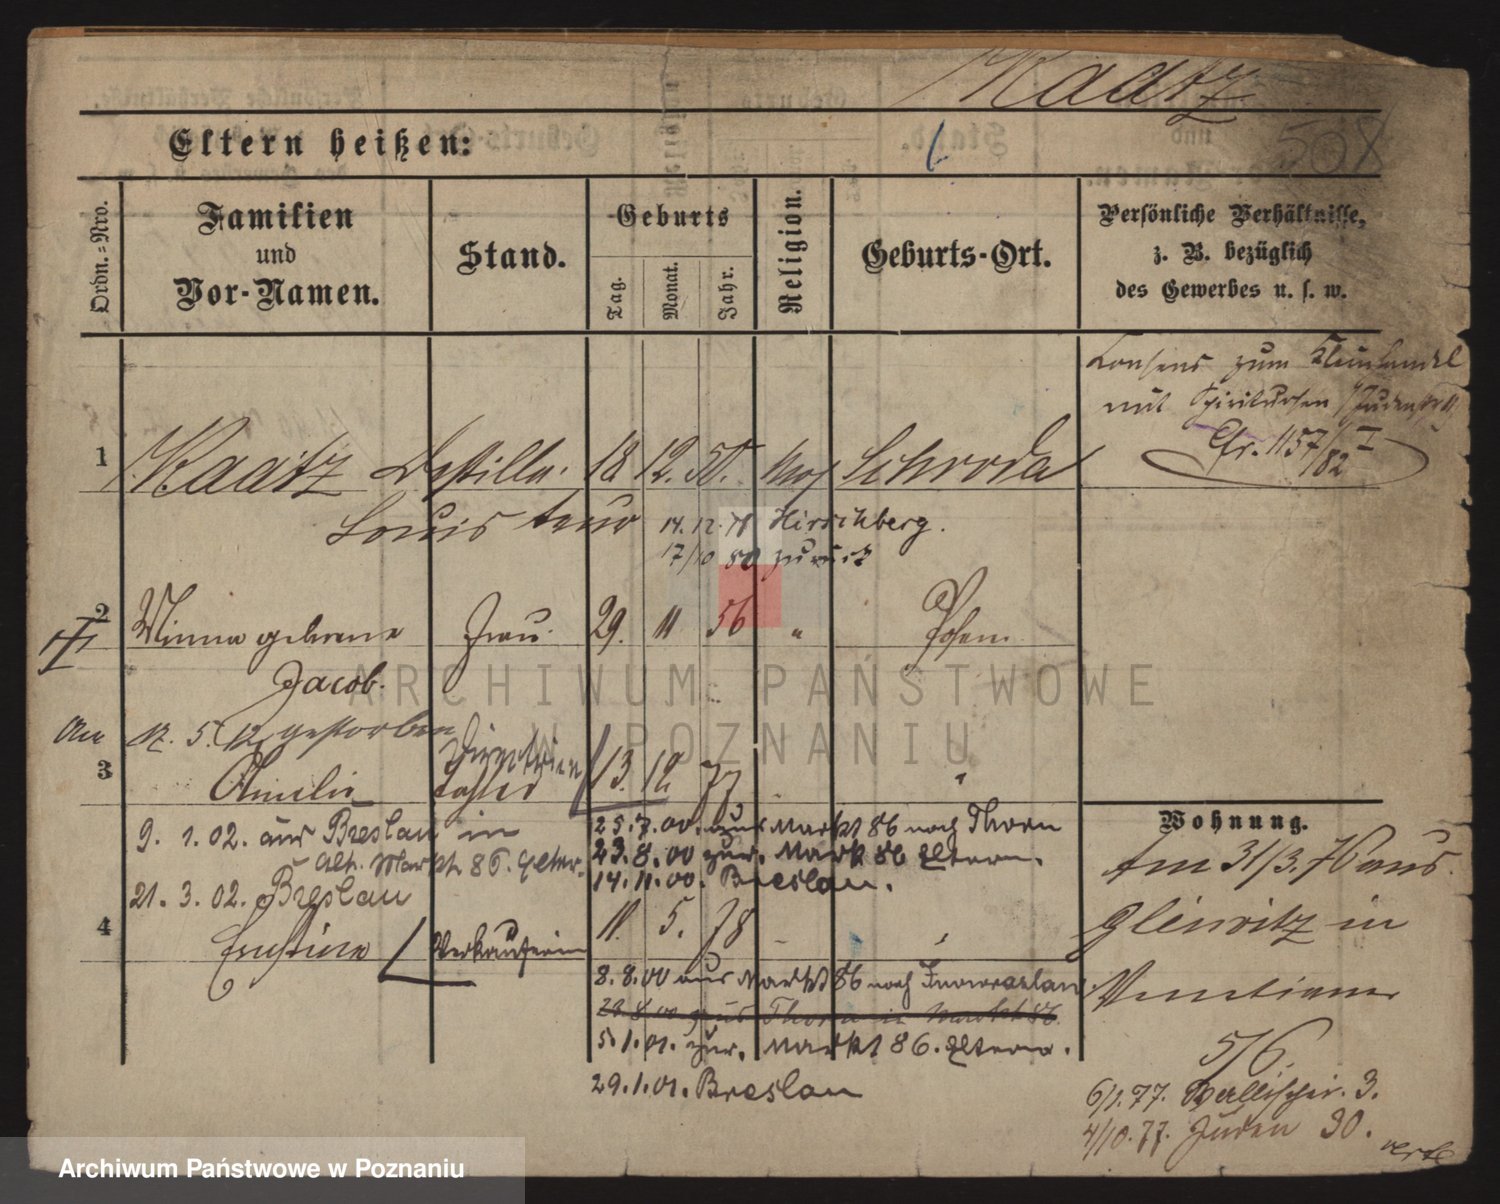 Kaatz
508
Eltern heißen:
Ordn.=Nro.
Familien
und
Vor-Namen.
Stand.
Geburts
Tag.
Monat.
Jahr.
Religion.
Geburts-Ort.
Persönliche Verhältnisse,
z. B. bezüglich
des Gewerbes u. s. w.
Consens zum Kleinhandel
mit Spirituosen
Cfr. 1157/82 I
1 Kaatz Destilla. 18 12. 50. mos Schroda
Louis
14. 12. 78 Hirschberg.
17/10 80 zurück
2 Minna geborene Frau. 29. 11 56 " Posen.
Jacob.
12. gestorben
3 Amelie Tochter 13. 12 77
Directrice
9. 1. 02. aus Breslau in
alt. Markt 86. Elter.
21. 3. 02. Breslau
25.7.00. aus Markt 86 nach Thorn
23.8.00 zur. Markt 86 Eltern.
14.11.00. Breslau.
4 Ernstine Verkäuferin 11. 5. 78
8.8.00 aus Markt 86 nach Inowrazlaw
5.1.01. zur. Markt 86. Eltern.
29.1.01. Breslau
Wohnung.
Am 31/3. 76 aus
Gleiwitz in
Venetianer
5/6.
6/1.77. Wallischei. 3.
4/10.77. Juden 30.
verte
ARCHIWUM PAŃSTWOWE
W POZNANIU
Archiwum Państwowe w Poznaniu